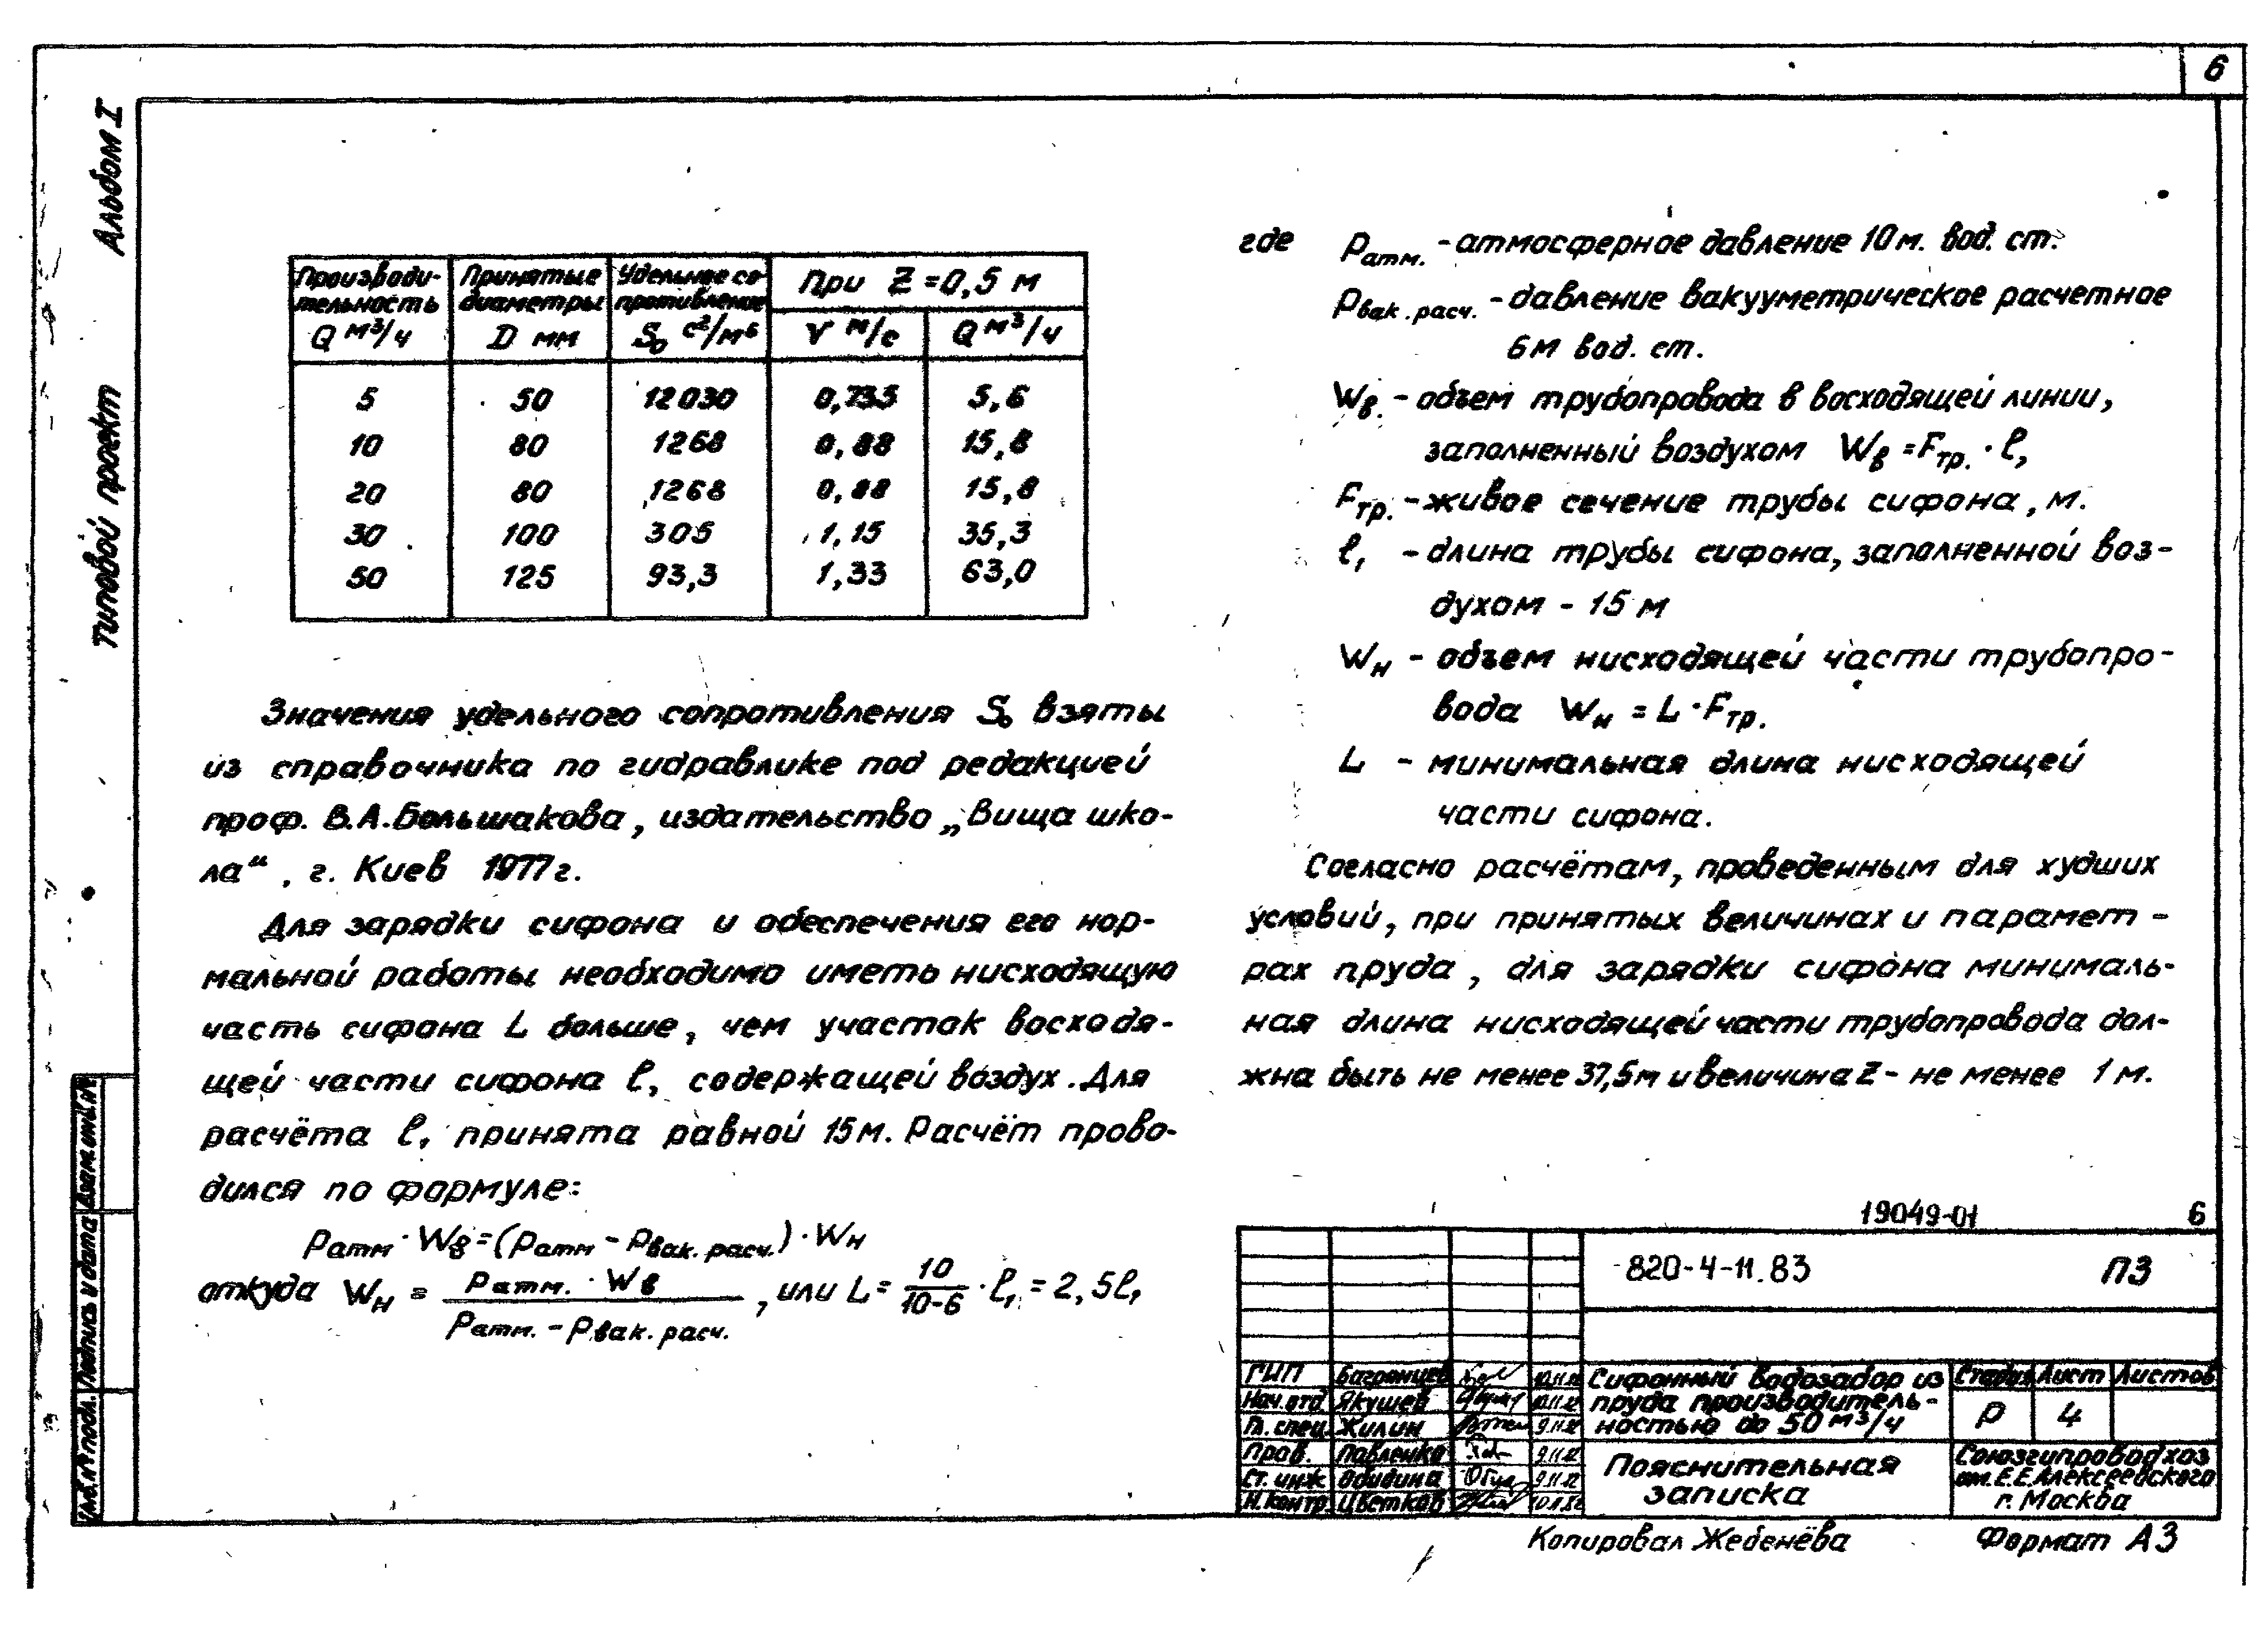 6
Альбом I
Типовой проект
Производи-
тельность
Q м³/ч
Принятые
диаметры
D мм
Удельное со-
противление
S₀ с²/м⁶
При Z = 0,5 м
V м/с
Q м³/ч
5 50 12030 0,735 5,6
10 80 1268 0,88 15,8
20 80 1268 0,88 15,8
30 100 305 1,15 35,3
50 125 93,3 1,33 63,0
Значения удельного сопротивления S₀ взяты
из справочника по гидравлике под редакцией
проф. В.А.Большакова, издательство „Вища шко-
ла“, г. Киев 1977г.
Для зарядки сифона и обеспечения его нор-
мальной работы необходимо иметь нисходящую
часть сифона L больше, чем участок восходя-
щей части сифона ℓ, содержащей воздух. Для
расчёта ℓ₁ принята равной 15м. Расчёт прово-
дился по формуле:
Pатм · Wв = (Pатм - Pвак. расч.) · Wн
откуда Wн = Pатм. · Wв / Pатм. - Pвак. расч. , или L = 10/10-6 · ℓ₁ = 2,5ℓ₁
где Pатм. - атмосферное давление 10м. вод. ст.
Pвак. расч. - давление вакууметрическое расчетное
6м вод. ст.
Wв. - объем трубопровода в восходящей линии,
заполненный воздухом Wв = Fтр. · ℓ,
Fтр. - живое сечение трубы сифона, м.
ℓ₁ - длина трубы сифона, заполненной воз-
духом - 15 м
Wн - объем нисходящей части трубопро-
вода Wн = L · Fтр.
L - минимальная длина нисходящей
части сифона.
Согласно расчётам, проведенным для худших
условий, при принятых величинах и парамет-
рах пруда, для зарядки сифона минималь-
ная длина нисходящей части трубопровода дол-
жна быть не менее 37,5м и величина Z - не менее 1м.
19049-01 6
820-4-11.83 ПЗ
ГИП Багронцев 10.11.82
Нач.отд. Якушев 10.11.82
Гл. спец. Жилин 9.11.82
Пров. Павленко 9.11.82
Ст. инж 9.11.82
Н.контр. Цветков
Сифонный водозабор из
пруда производитель-
ностью до 50 м³/ч
Стадия Лист Листов
Р 4
Пояснительная
записка
Союзгипроводхоз
им. Е.Е.Алексеевского
г. Москва
Копировал Жебенёва Формат А3
Взам.инв.№
Подпись и дата
Инв.№ подл.